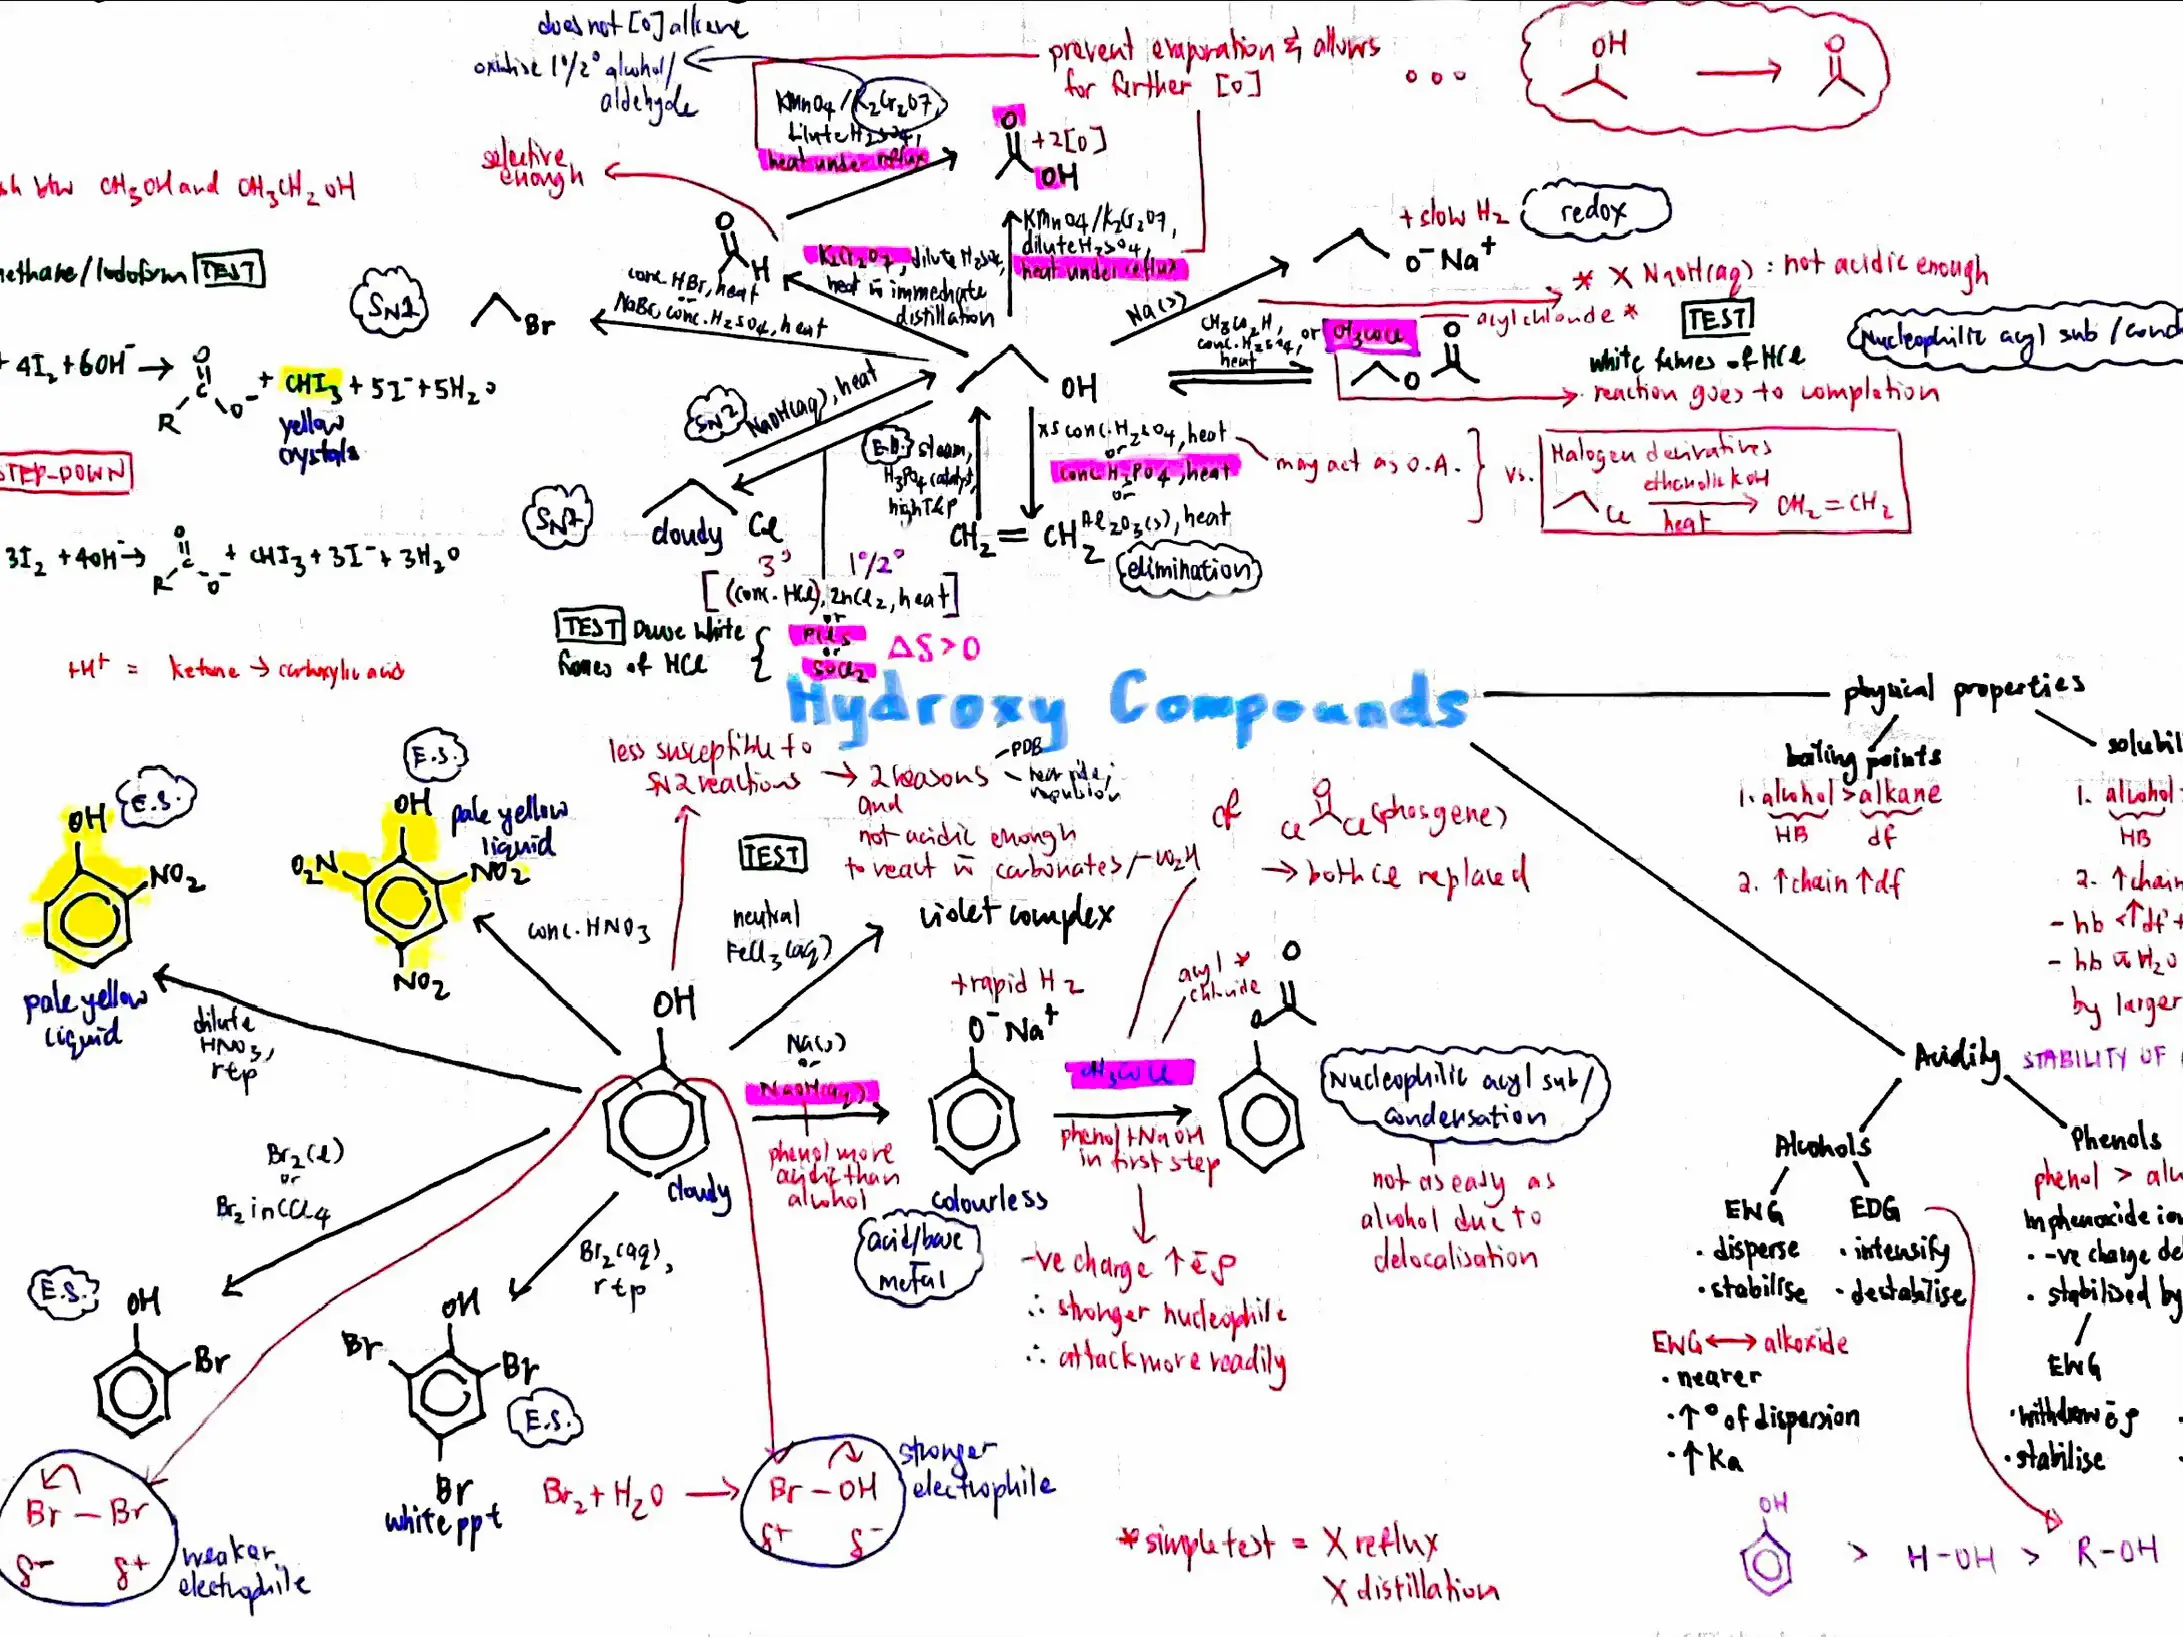 does not [O] alkene
oxidise 1°/2° alcohol/
aldehyde
KMnO4/K2Cr2O7,
dilute H2SO4,
heat under reflux
prevent evaporation & allows
for further [O]
OH
O
selective
enough
O
+2[O]
OH
btw CH3OH and CH3CH2OH
KMnO4/K2Cr2O7,
dilute H2SO4,
heat under reflux
+ slow H2
redox
O⁻Na⁺
O
H
K2Cr2O7, dilute H2SO4,
heat w̄ immediate
distillation
* X NaOH(aq): not acidic enough
Iodoform TEST
SN2
Br
conc. HBr, heat
or
NaBr, conc. H2SO4, heat
Na(s)
CH3CO2H,
conc. H2SO4,
heat
or CH3COCl
acyl chloride *
TEST
white fumes of HCl
Nucleophilic acyl sub/cond
O
O
reaction goes to completion
+ 4I2 + 6OH⁻ → R C O O⁻ + CHI3 + 5I⁻ + 5H2O
yellow
crystals
OH
SN2
NaOH(aq), heat
E.A. steam,
H3PO4 catalyst,
high T&P
xs conc. H2SO4, heat
or
conc. H3PO4, heat
or
Al2O3(s), heat
may act as O.A.
vs.
Halogen derivatives
ethanolic KOH
heat
Cl
CH2=CH2
STEP-DOWN
SN2
cloudy
Cl
CH2=CH2
elimination
3I2 + 4OH⁻ → R C O O⁻ + CHI3 + 3I⁻ + 3H2O
3° 1°/2°
[(conc. HCl), ZnCl2, heat]
or
PCl5
or
SOCl2
ΔS>0
TEST Dense white
fumes of HCl
+H⁺ = ketone → carboxylic acid
Hydroxy Compounds
physical properties
boiling points
1. alcohol > alkane
HB df
2. ↑chain ↑df
1. alcohol
HB
2. ↑chain
- hb < ↑df
- hb w̄ H2O
by larger
less susceptible to
SN2 reactions → 2 reasons
PDB
and
not acidic enough
to react w̄ carbonates/-CO2H
cf
O
Cl Cl (phosgene)
→ both Cl replaced
E.S.
OH
NO2
pale yellow
liquid
E.S.
OH
O2N
NO2
NO2
pale yellow
liquid
conc. HNO3
dilute
HNO3,
rtp
TEST
neutral
FeCl3(aq)
violet complex
OH
cloudy
Na(s)
or
NaOH(aq)
phenol more
acidic than
alcohol
+ rapid H2
O⁻Na⁺
colourless
acid/base
metal
acyl *
chloride
CH3COCl
phenol + NaOH
in first step
-ve charge ↑ēρ
∴ stronger nucleophile
∴ attack more readily
O
O
Nucleophilic acyl sub/
condensation
not as easy as
alcohol due to
delocalisation
Acidity STABILITY OF
Alcohols
EWG
· disperse
· stabilise
EDG
· intensify
· destabilise
EWG ↔ alkoxide
· nearer
· ↑° of dispersion
· ↑Ka
Phenols
phenol >
In phenoxide
· -ve charge
· stabilised by
EWG
· withdraw ēρ
· stabilise
Br2(l)
or
Br2 in CCl4
E.S.
OH
Br
Br2(aq),
rtp
OH
Br
Br
Br
E.S.
white ppt
Br – Br
δ⁻ δ⁺
weaker
electrophile
Br2 + H2O →
Br – OH
δ⁺ δ⁻
stronger
electrophile
*simple test = X reflux
X distillation
OH
> H-OH > R-OH